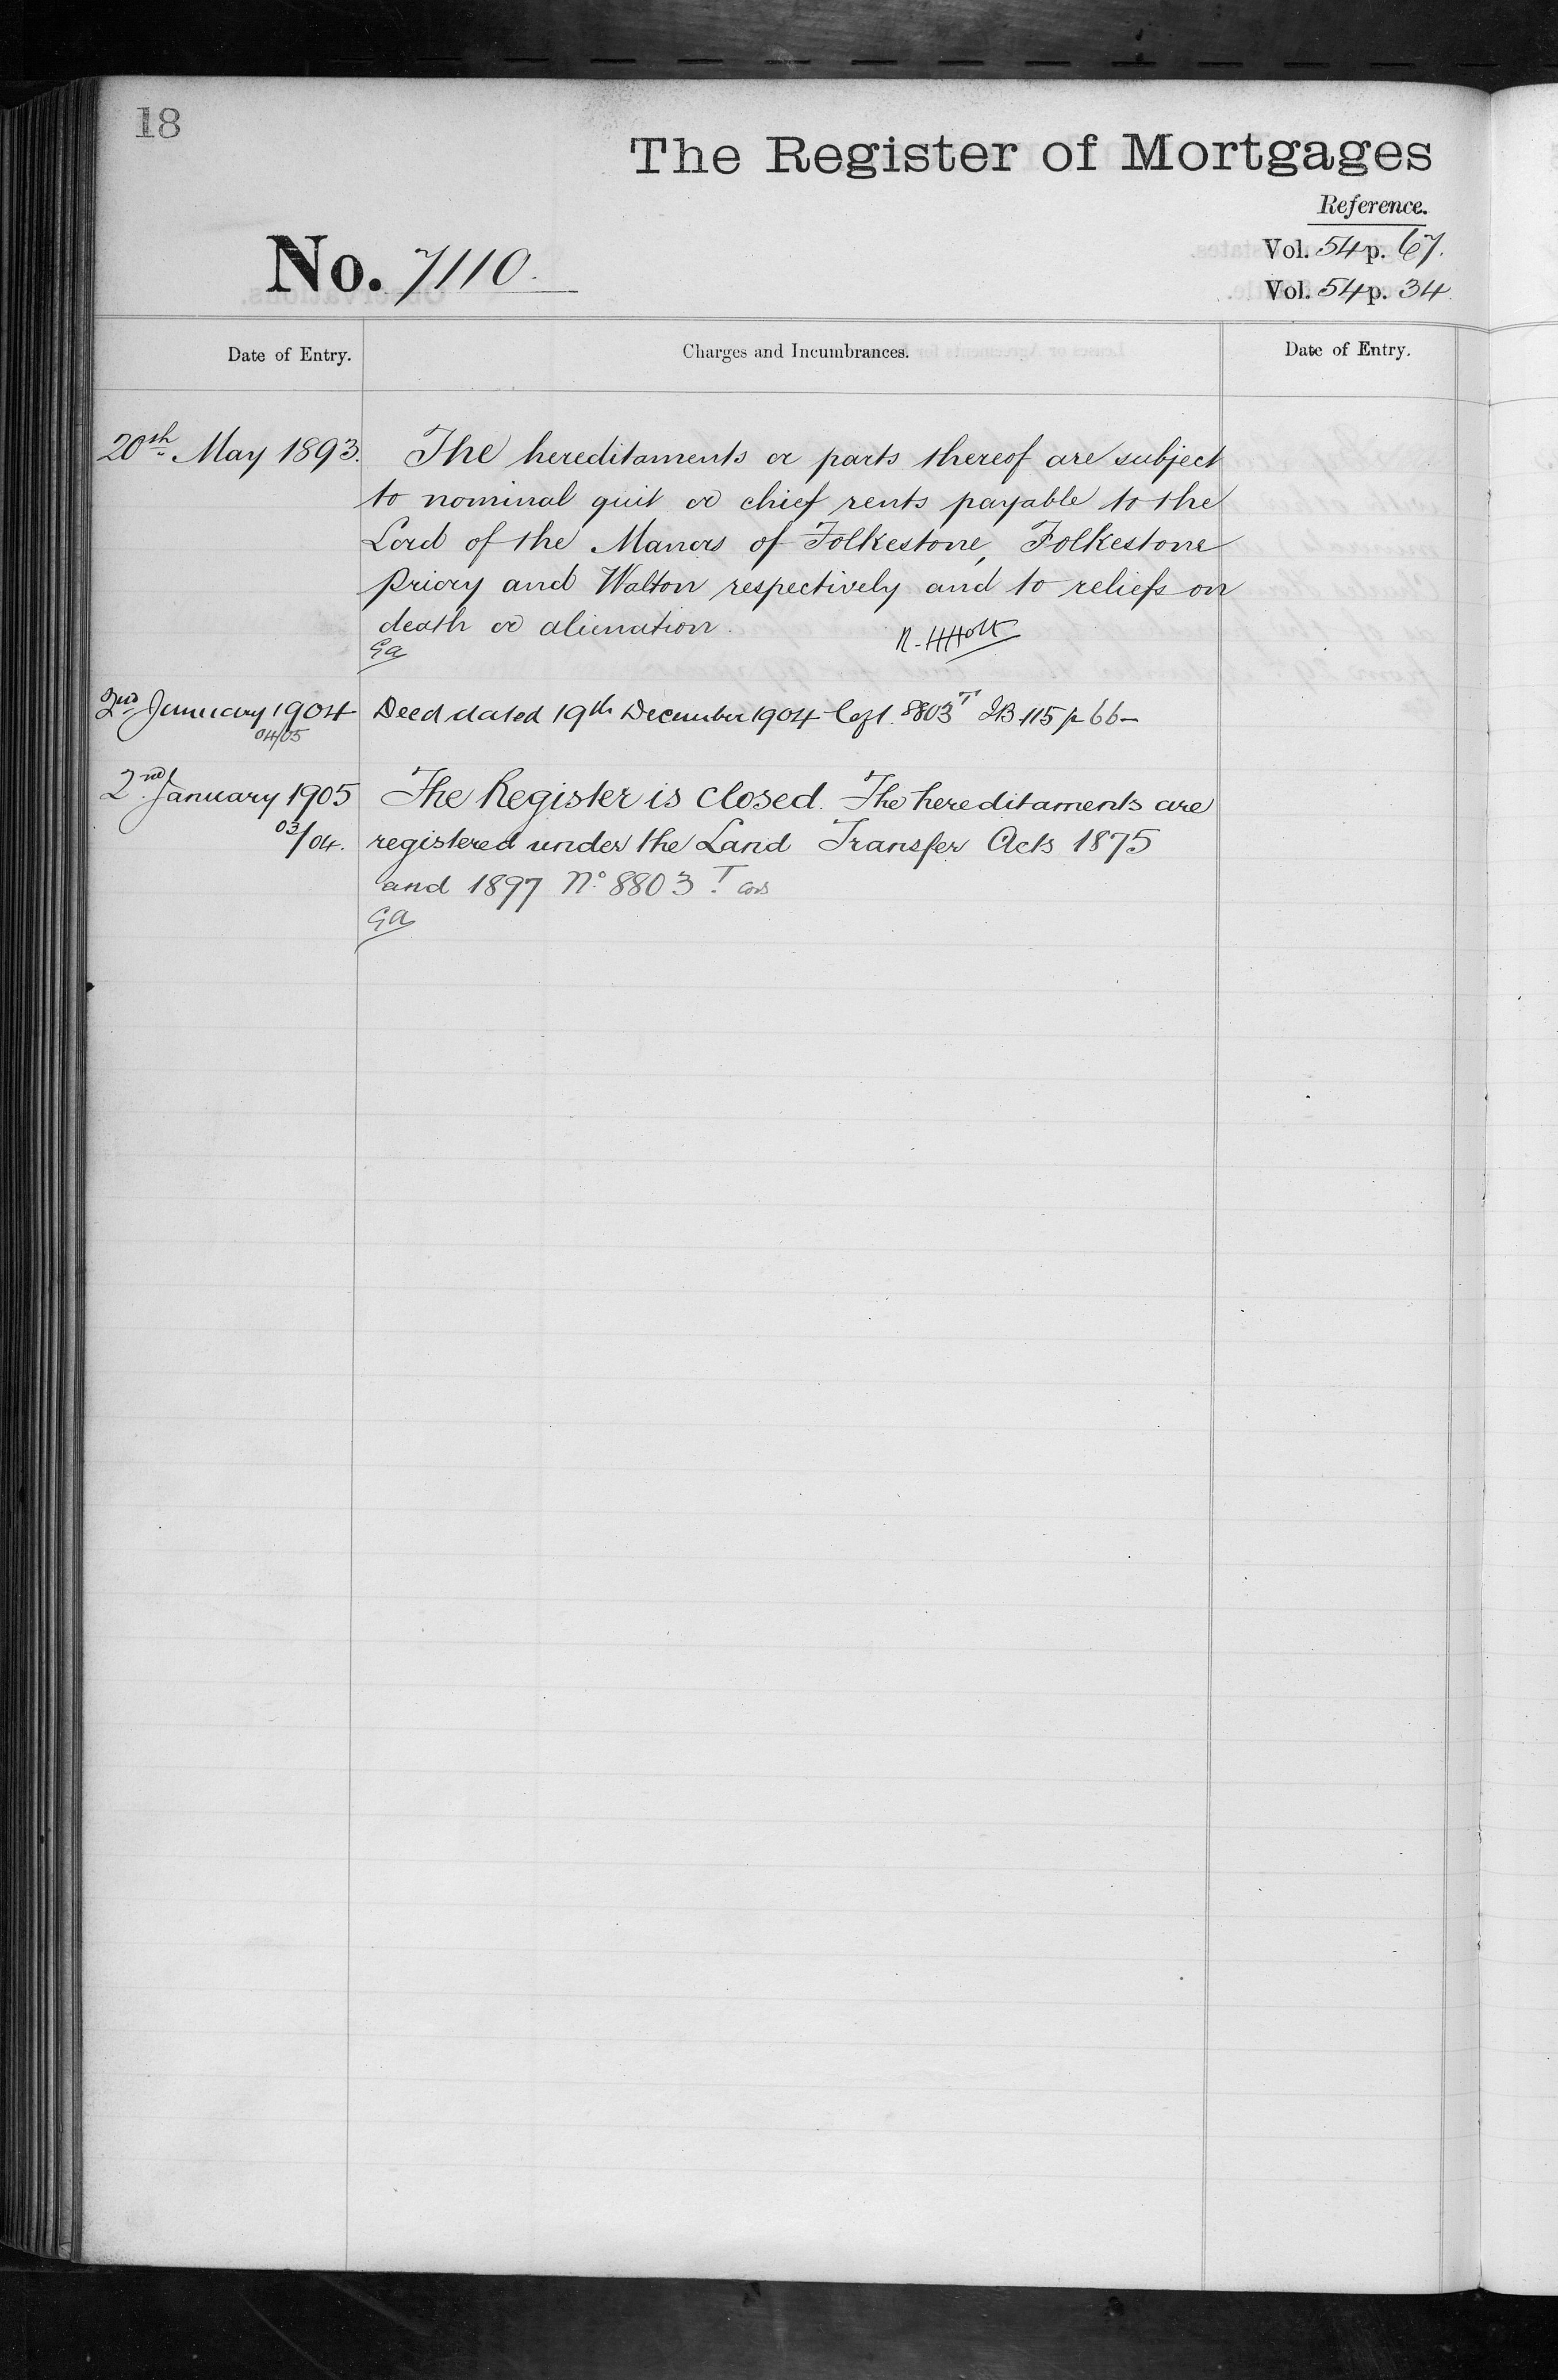 18
The Register of Mortgages
Reference.
No. 7110.
Vol. 54 p. 67.
Vol. 54 p. 34
Date of Entry.
Charges and Incumbrances.
Date of Entry.
20th May 1893.
The hereditaments or parts thereof are subject
to nominal quit or chief rents payable to the
Lord of the Manors of Folkestone, Folkestone
Priory and Walton respectively and to reliefs on
death or alienation.
R. H Holt
Ga
2nd January 1904
04/05
Deed dated 19th December 1904 left. 8803T IB 115 p 66-
2nd January 1905
03/04.
The Register is closed. The hereditaments are
registered under the Land Transfer Acts 1875
and 1897 No. 8803 T.
Ga